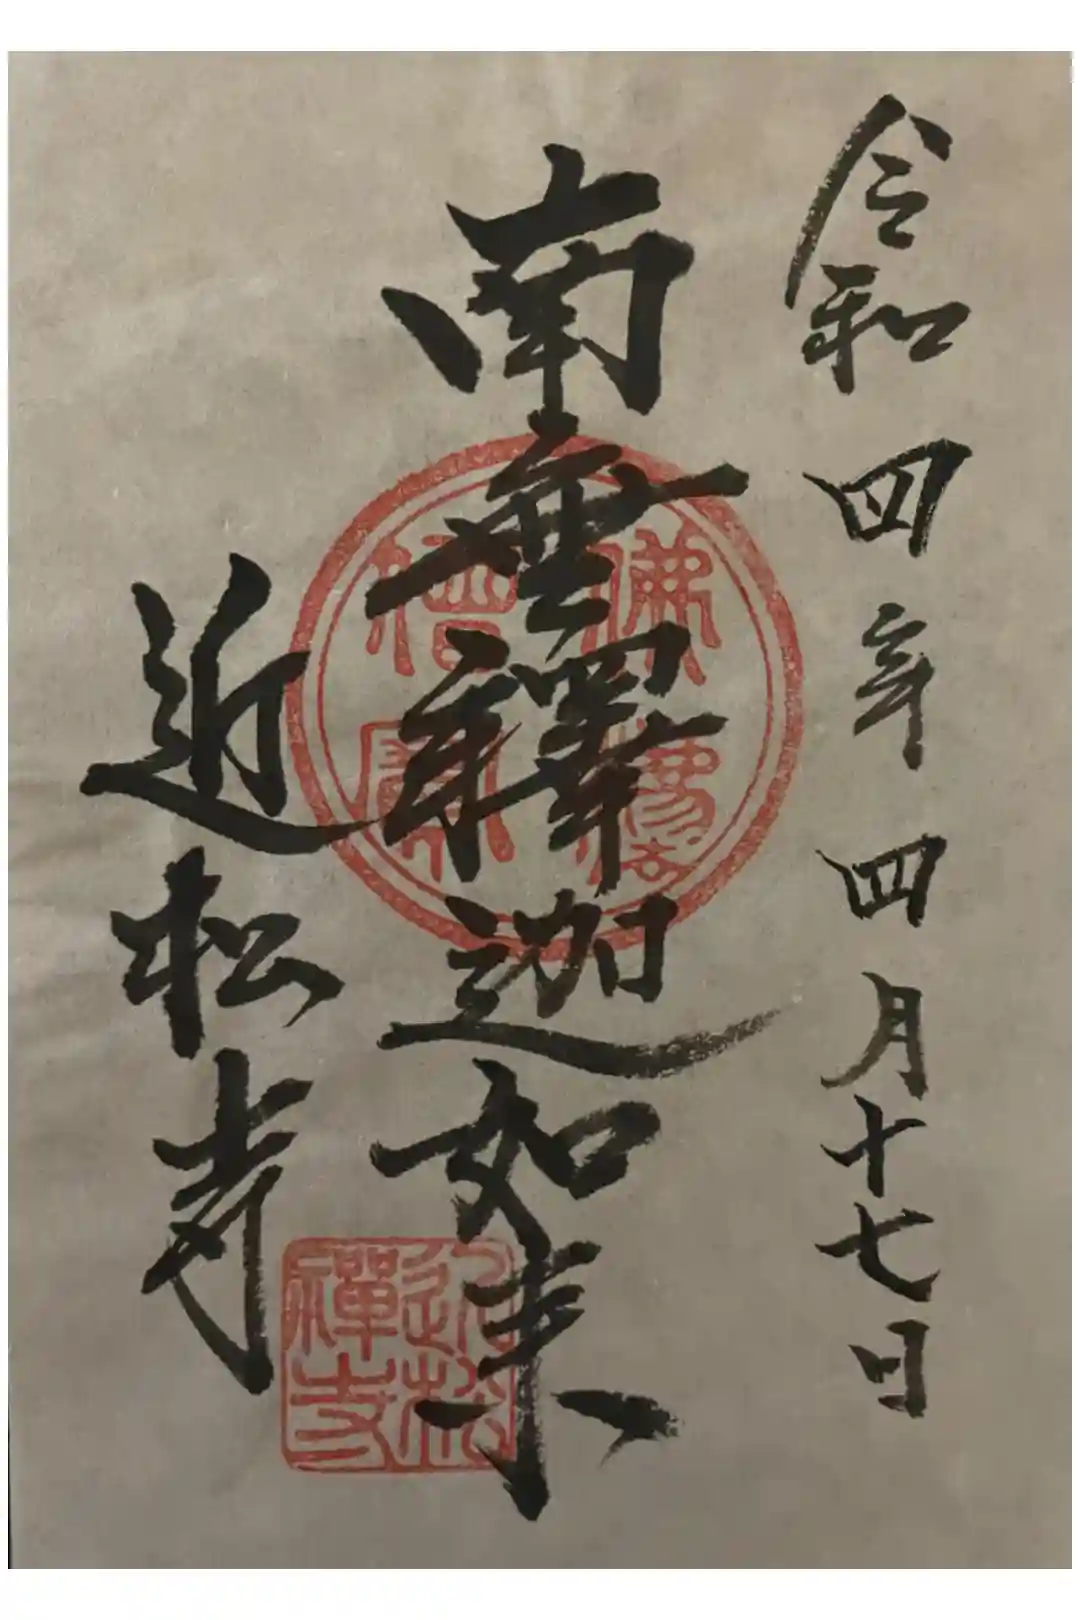 令和四年四月十七日
南無釋迦如来
近松寺
近松
禅寺